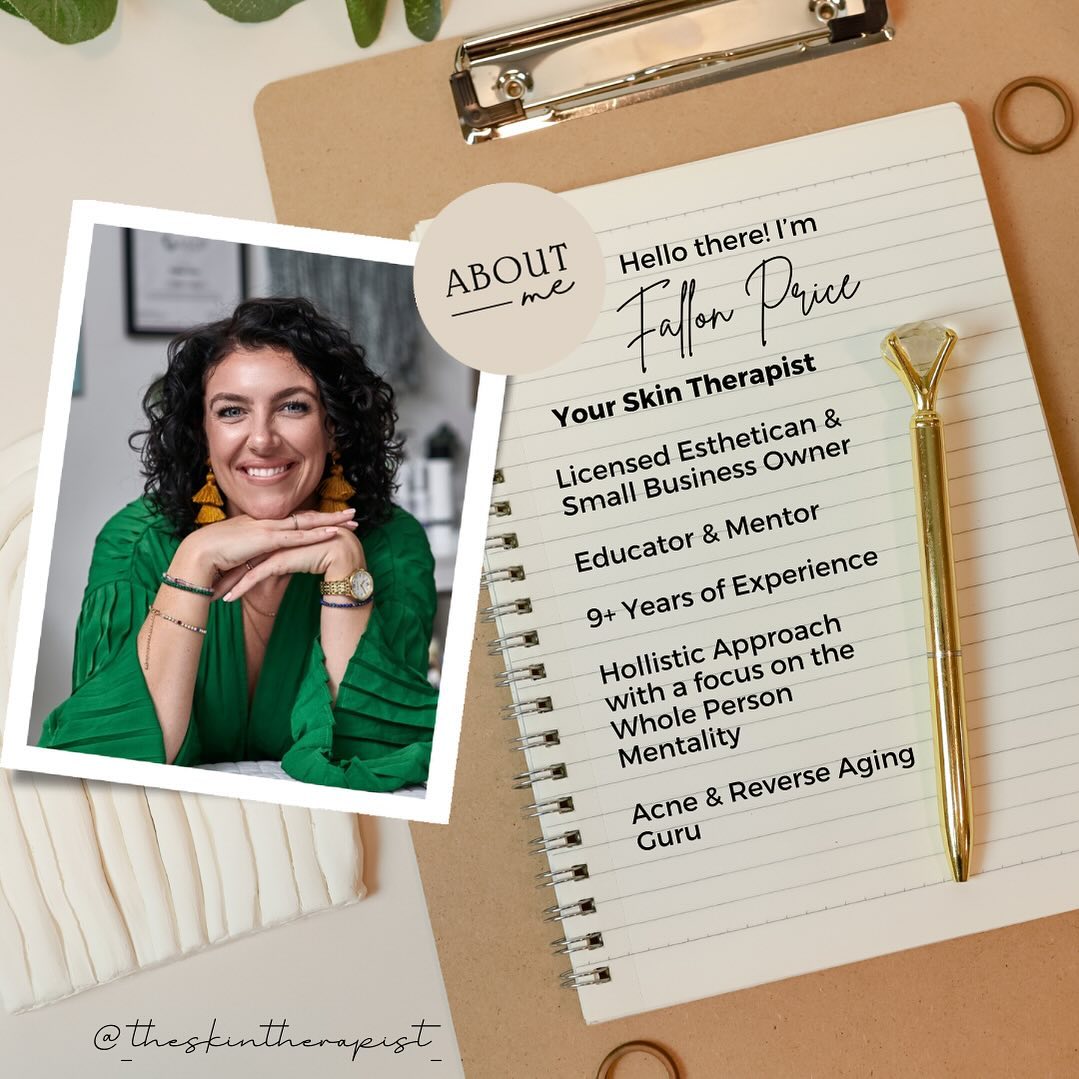 ABOUT
me
Hello there! I'm
Fallon Price
Your Skin Therapist
Licensed Esthetican &
Small Business Owner
Educator & Mentor
9+ Years of Experience
Hollistic Approach
with a focus on the
Whole Person
Mentality
Acne & Reverse Aging
Guru
@_theskintherapist_